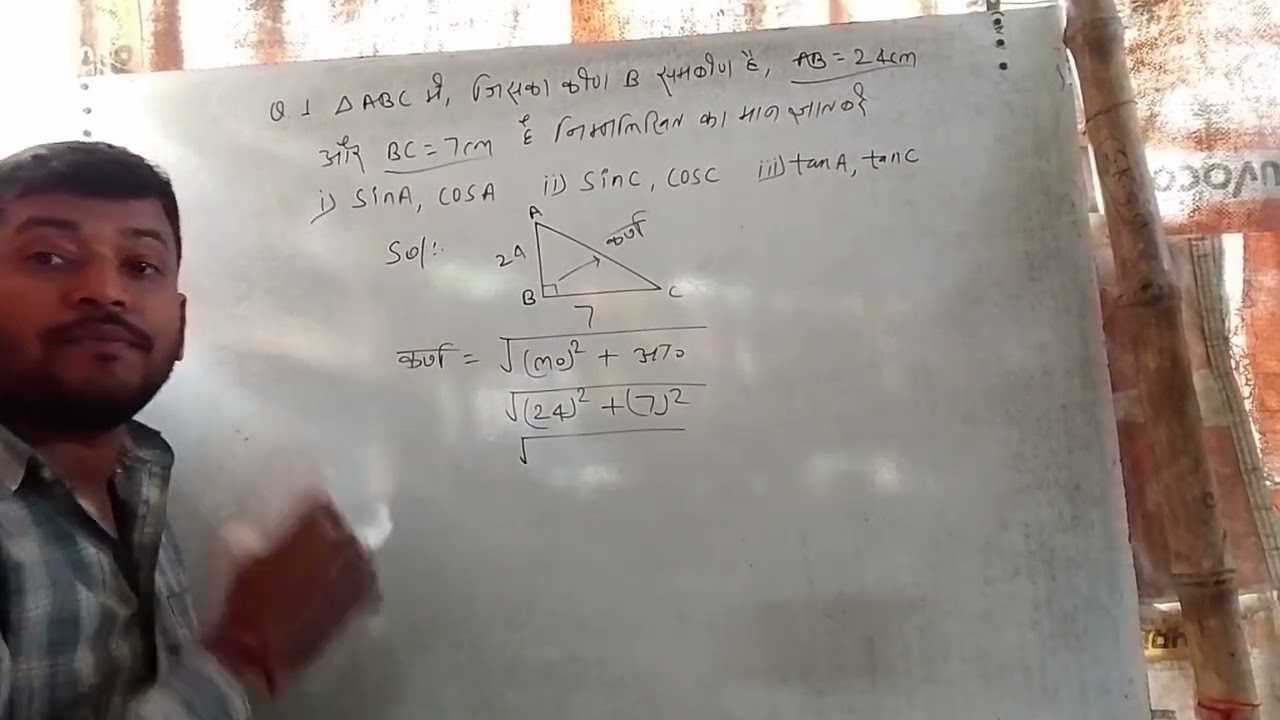 Q. 1 △ABC में, जिसका कोण B समकोण है, AB = 24cm
और BC = 7cm है निम्नलिखित का मान ज्ञात करें
i) sinA, cosA ii) sinC, cosC iii) tanA, tanC
Sol:
A
24
कर्ण
B
C
7
कर्ण = √(ल०)² + आ०
√(24)² + (7)²
√
uvoco